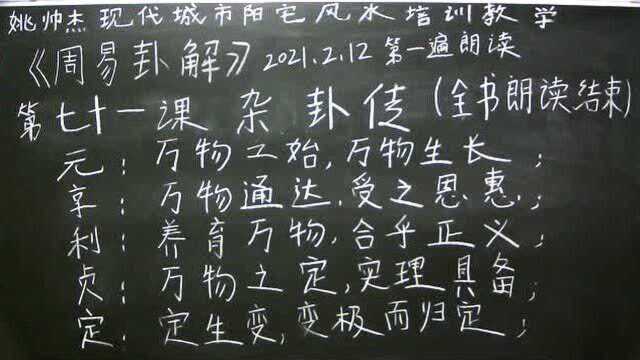 姚帅杰现代城市阳宅风水培训教学
《周易卦解》2021.2.12第一遍朗读
第七十一课 杂卦传(全书朗读结束)
元：万物之始，万物生长；
享：万物通达，受之恩惠；
利：养育万物，合乎正义；
贞：万物之定，实理具备；
定：定生变，变极而归定；